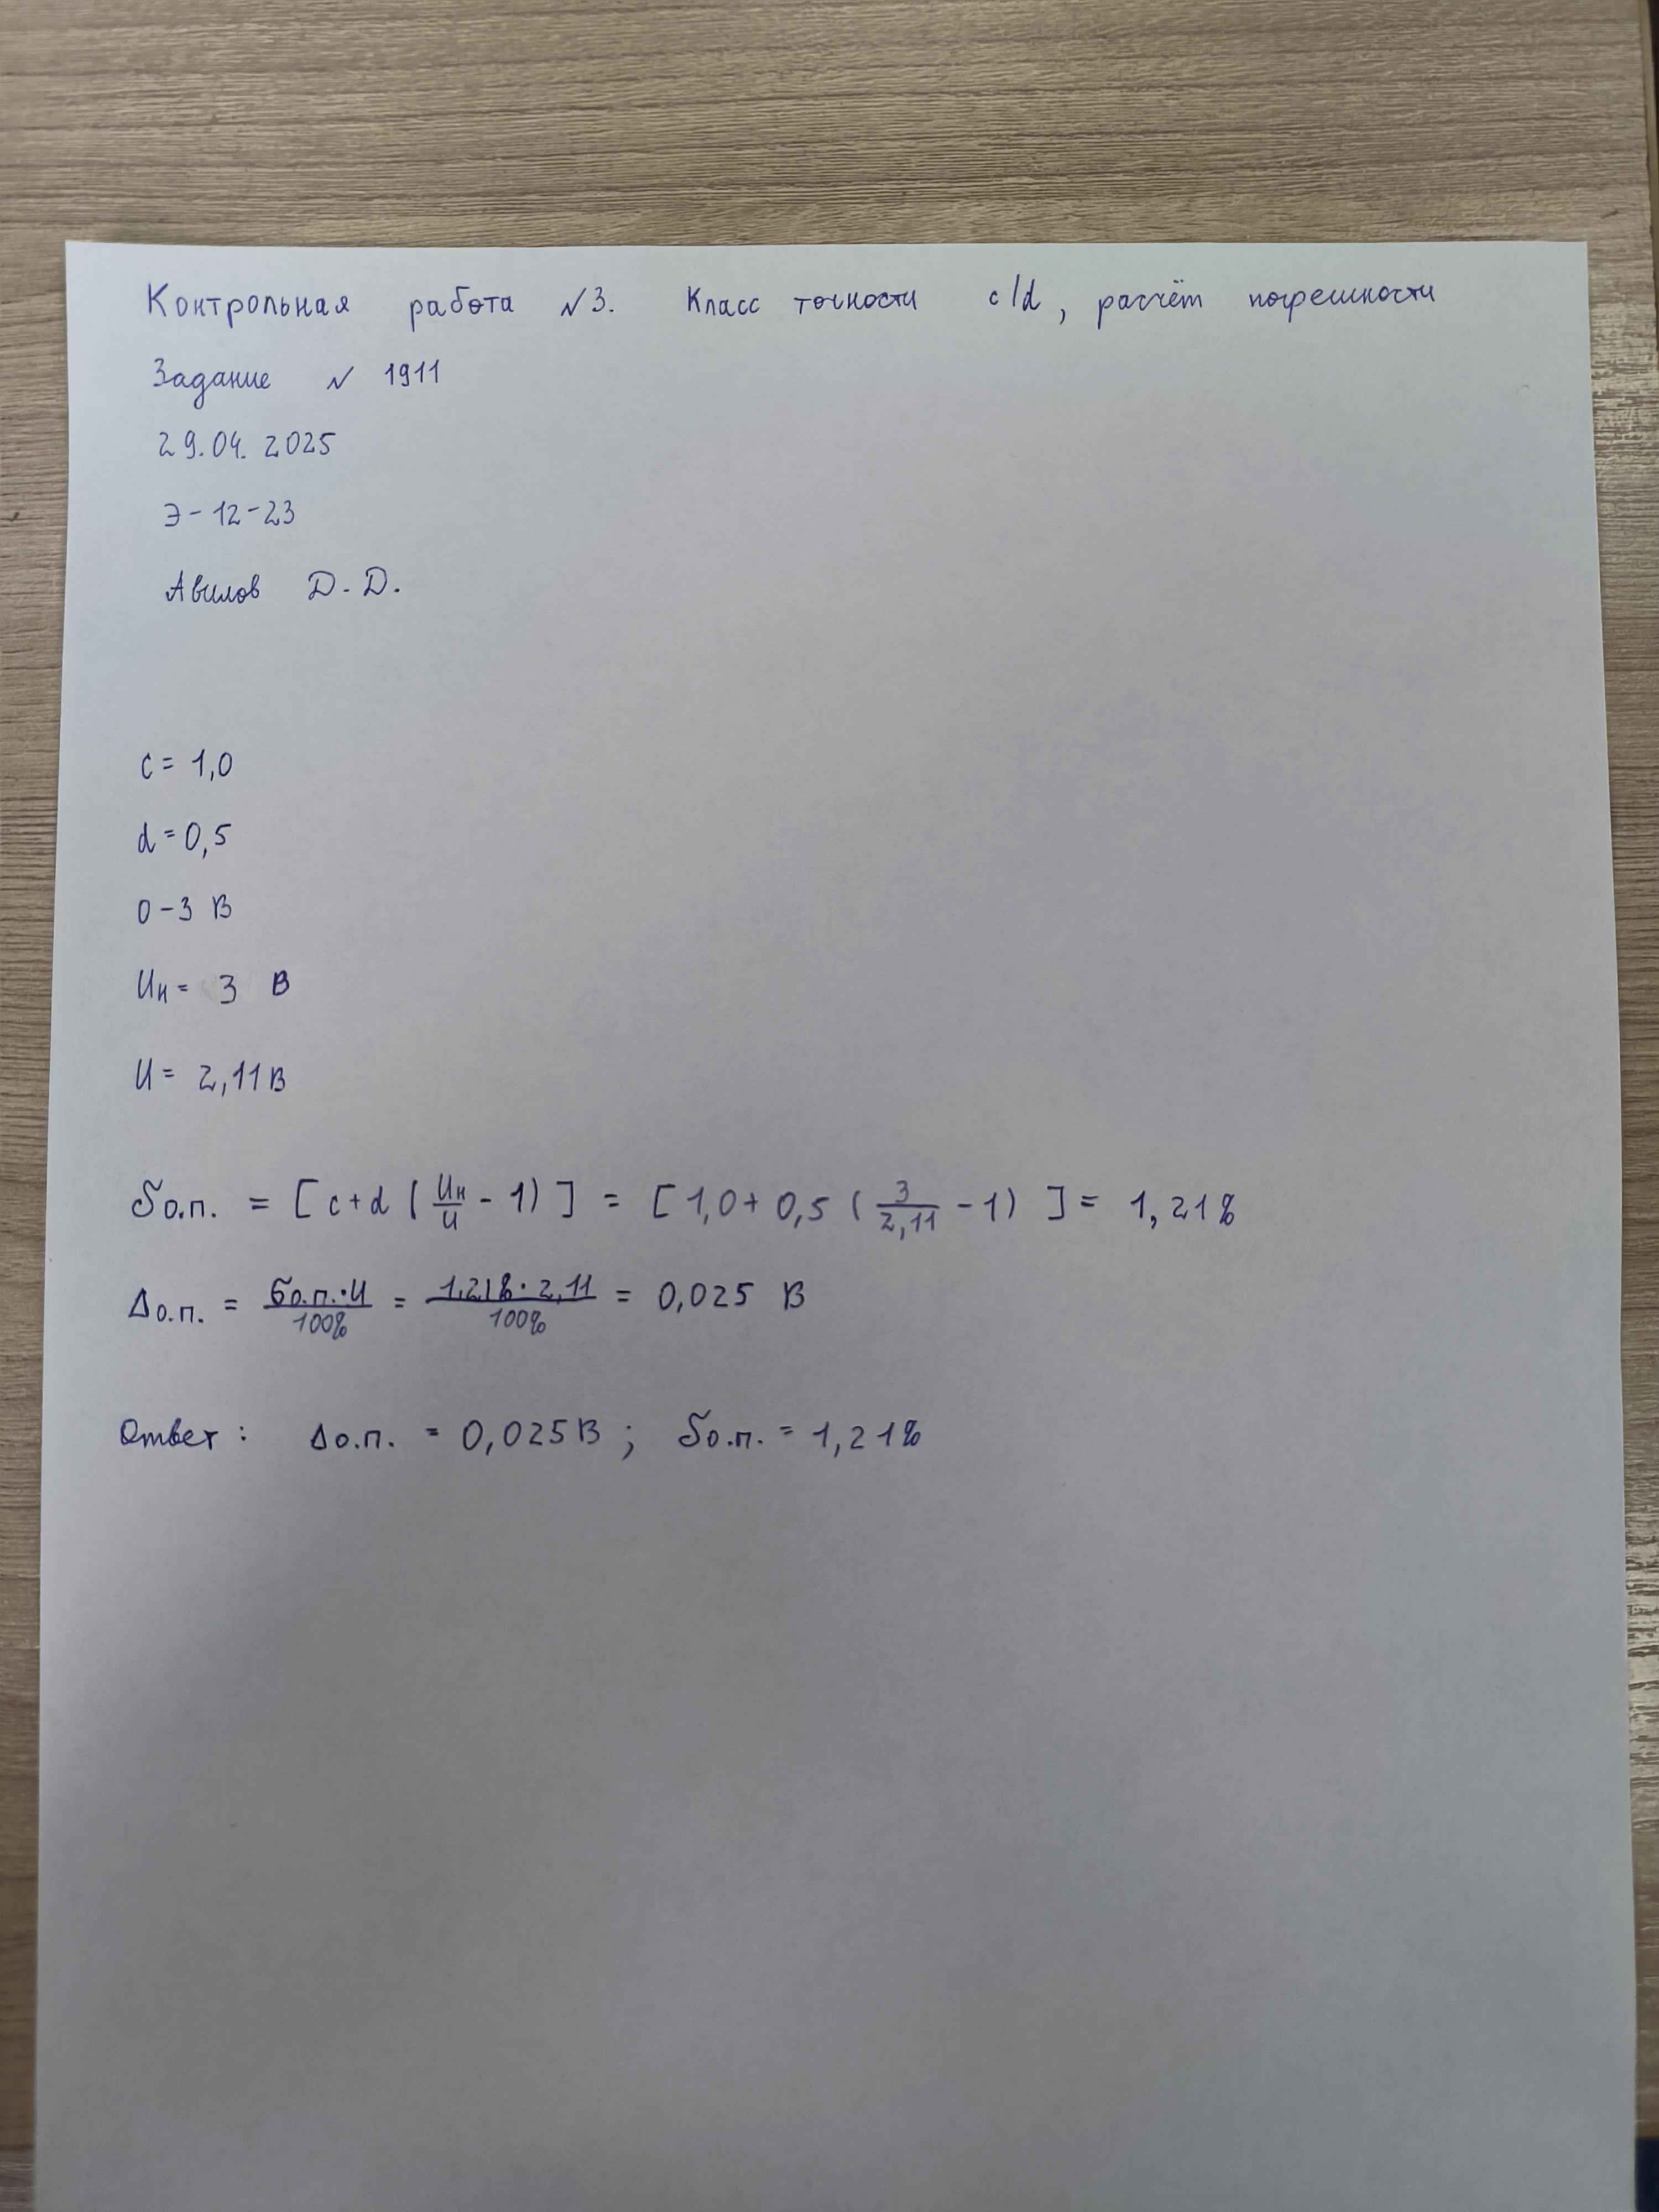 Контрольная работа №3. Класс точности c/d, расчёт погрешности
Задание № 1911
29.04.2025
Э-12-23
Авилов Д.Д.
c = 1,0
d = 0,5
0-3 В
Uн = 3 В
U = 2,11 В
δо.п. = [c+d(Uн/U - 1)] = [1,0 + 0,5(3/2,11 - 1)] = 1,21%
Δо.п. = δо.п.·U/100% = 1,21%·2,11/100% = 0,025 В
Ответ: Δо.п. = 0,025 В; δо.п. = 1,21%